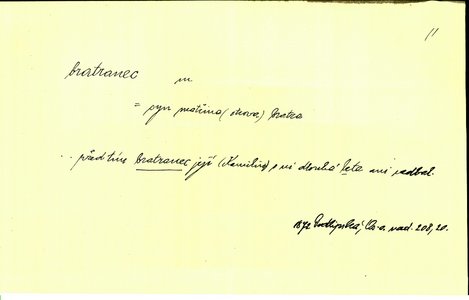 bratranec m
= syn matčina (otcova) bratra
... před tím bratranec její (Kamilin) o ni dlouhá léta ani nedbal.
1872 Podlipská, nad. 208, 20.